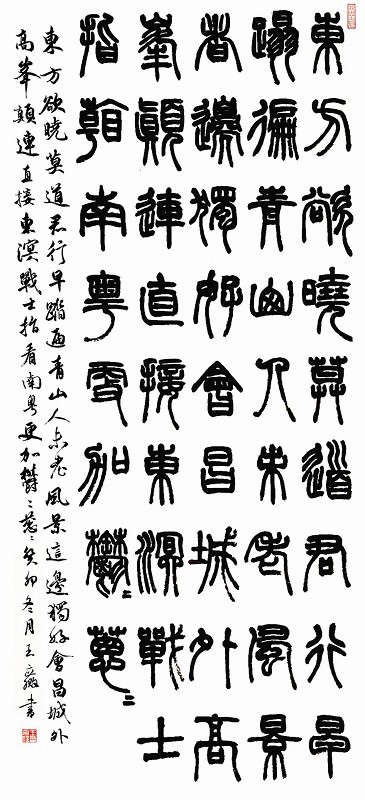 東方欲曉莫道君行早
踏遍青山人未老風景
者邊獨好會昌城外高
峯顛連直接東溟戰士
指看南粵更加鬱〻蔥〻
東方欲曉莫道君行早踏遍青山人未老風景這邊獨好會昌城外
高峯顛連直接東溟戰士指看南粵更加鬱〻蔥〻癸卯冬月王書